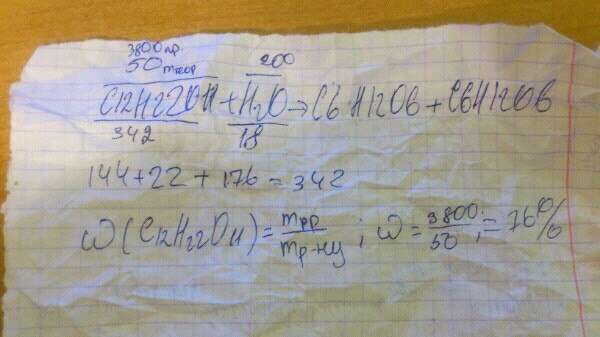 3800 пр. 200
50 теор
C12H22O11 + H2O → C6H12O6 + C6H12O6
342 18
144+22+176=342
ω(C12H22O11) = mпр / mр-ну ; ω = 3800 / 50 ; = 76%